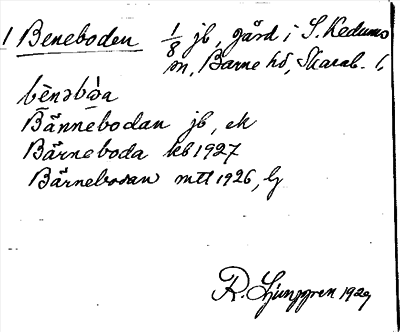 1 Beneboden 1/8 jb, gård i S. Kedums
sn, Barne hd, Skarab. l.
bènəbòa
Bännebodan jb, ek
Bärneboda kb 1927
Bärnebodan mtl 1926, lj
R. Ljunggren 1929